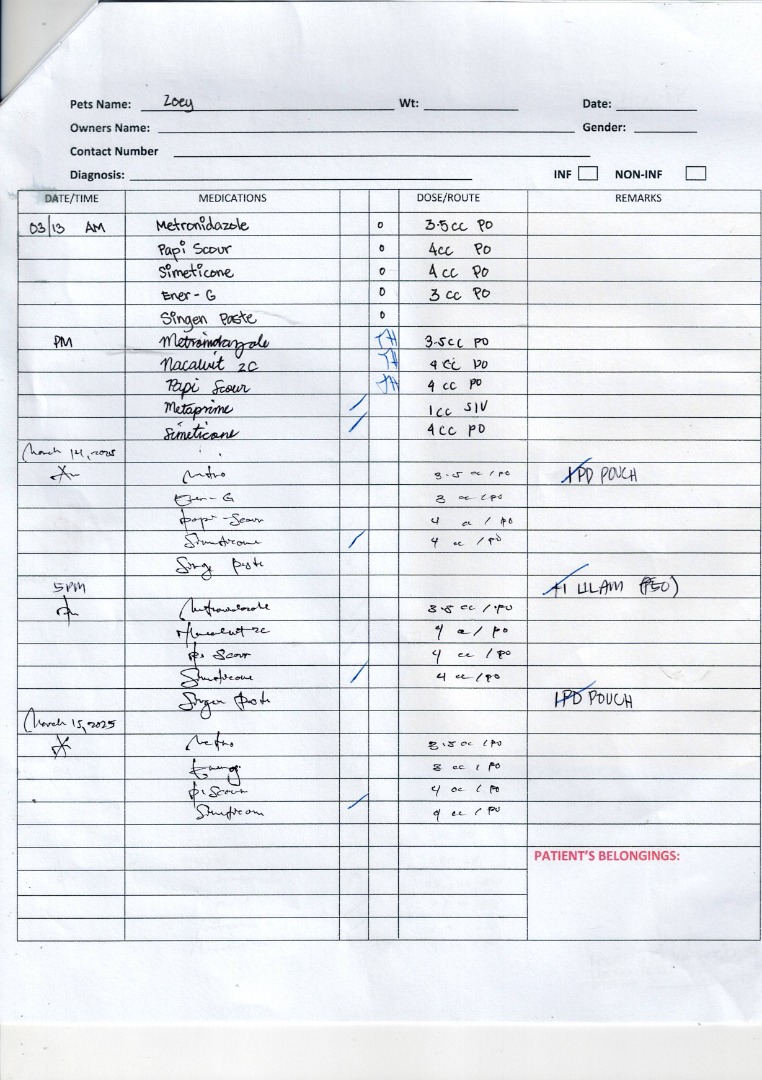 Pets Name: Zoey Wt: Date:
Owners Name: Gender:
Contact Number
Diagnosis: INF NON-INF
DATE/TIME MEDICATIONS DOSE/ROUTE REMARKS
03/13 AM Metronidazole o 3.5cc PO
Papi Scour o 4cc PO
Simeticone o 4cc PO
Ener-G o 3cc PO
Singen Paste o
PM Metronidazole 3.5cc PO
Nacalvit 2C 4cc PO
Papi Scour 4cc PO
Metaprime / 1cc SIV
Simeticone / 4cc PO
March 14, 2025
Metro 3.5cc/po 1 PD POUCH
Ener-G 3cc/po
papi-Scour 4cc/po
Simeticone / 4cc/po
Singen paste
5PM +1 ULAM (P50)
Metronidazole 3.5cc/po
Nacalvit 2C 4cc/po
Scour 4cc/po
Simeticone / 4cc/po
Singen paste 1 PD POUCH
March 15, 2025
Metro 3.5cc/po
3cc/po
Scour 4cc/po
/ 4cc/po
PATIENT'S BELONGINGS: